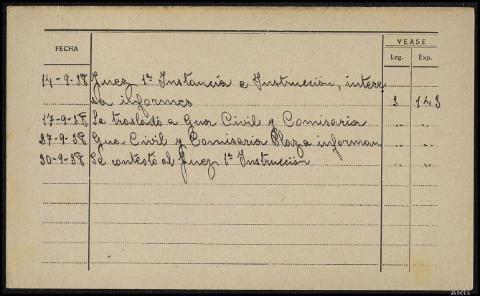 FECHA
VEASE
Leg. Exp.
14-9-38 Juez 1ª Instancia e Instrucción, intere
sa informes 2 143
17-9-38 Se traslado a Gua Civil y Comisaria " "
27-9-38 Gua Civil y Comisaria Plaza informan " "
30-9-38 Se contestó al Juez 1ª Instrucción " "